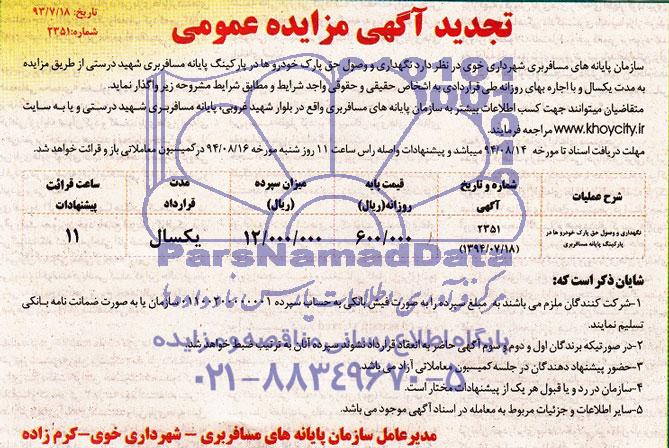 تجدید آگهی مزایده عمومی
تاریخ: ۹۳/۷/۱۸
شماره: ۲۳۵۱
سازمان پایانه های مسافربری شهرداری خوی در نظر دارد نگهداری و وصول حق پارک خودرو ها در پارکینگ پایانه مسافربری شهید درستی از طریق مزایده
به مدت یکسال و با اجاره بهای روزانه طی قراردادی به اشخاص حقیقی و حقوقی واجد شرایط و مطابق شرایط مشروحه زیر واگذار نماید.
متقاضیان میتوانند جهت کسب اطلاعات بیشتر به سازمان پایانه های مسافربری واقع در بلوار شهید غروبی، پایانه مسافربری شهید درستی و یا به سایت
www.khoycity.ir مراجعه فرمایند.
مهلت دریافت اسناد تا مورخه ۹۴/۰۸/۱۴ میباشد و پیشنهادات واصله راس ساعت ۱۱ روز شنبه مورخه ۹۴/۰۸/۱۶ در کمیسیون معاملاتی باز و قرائت خواهد شد.
شرح عملیات
شماره و تاریخ آگهی
قیمت پایه روزانه(ریال)
میزان سپرده (ریال)
مدت قرارداد
ساعت قرائت پیشنهادات
نگهداری و وصول حق پارک خودرو ها در پارکینگ پایانه مسافربری
۲۳۵۱ (۱۳۹۴/۰۷/۱۸)
۶۰۰/۰۰۰
۱۲/۰۰۰/۰۰۰
یکسال
۱۱
ParsNamadData
شایان ذکر است که:
۱-شرکت کنندگان ملزم می باشند به مبلغ سپرده را به صورت فیش بانکی به حساب سپرده سازمان یا به صورت ضمانت نامه بانکی
تسلیم نمایند.
۲-در صورتیکه برندگان اول و دوم و سوم آگهی حاضر به انعقاد قرارداد نشوند سپرده آنان به ترتیب ضبط خواهد شد.
۳-حضور پیشنهاد دهندگان در جلسه کمیسیون معاملاتی آزاد می باشد.
۴-سازمان در رد و یا قبول هر یک از پیشنهادات مختار است.
۵-سایر اطلاعات و جزئیات مربوط به معامله در اسناد آگهی موجود می باشد.
مرکز آوری اطلاعات پارس نماد داده ها
پایگاه اطلاع رسانی مناقصه و مزایده
۰۲۱-۸۸۳۴۹۶۷۰-۵
مدیرعامل سازمان پایانه های مسافربری – شهرداری خوی-کرم زاده